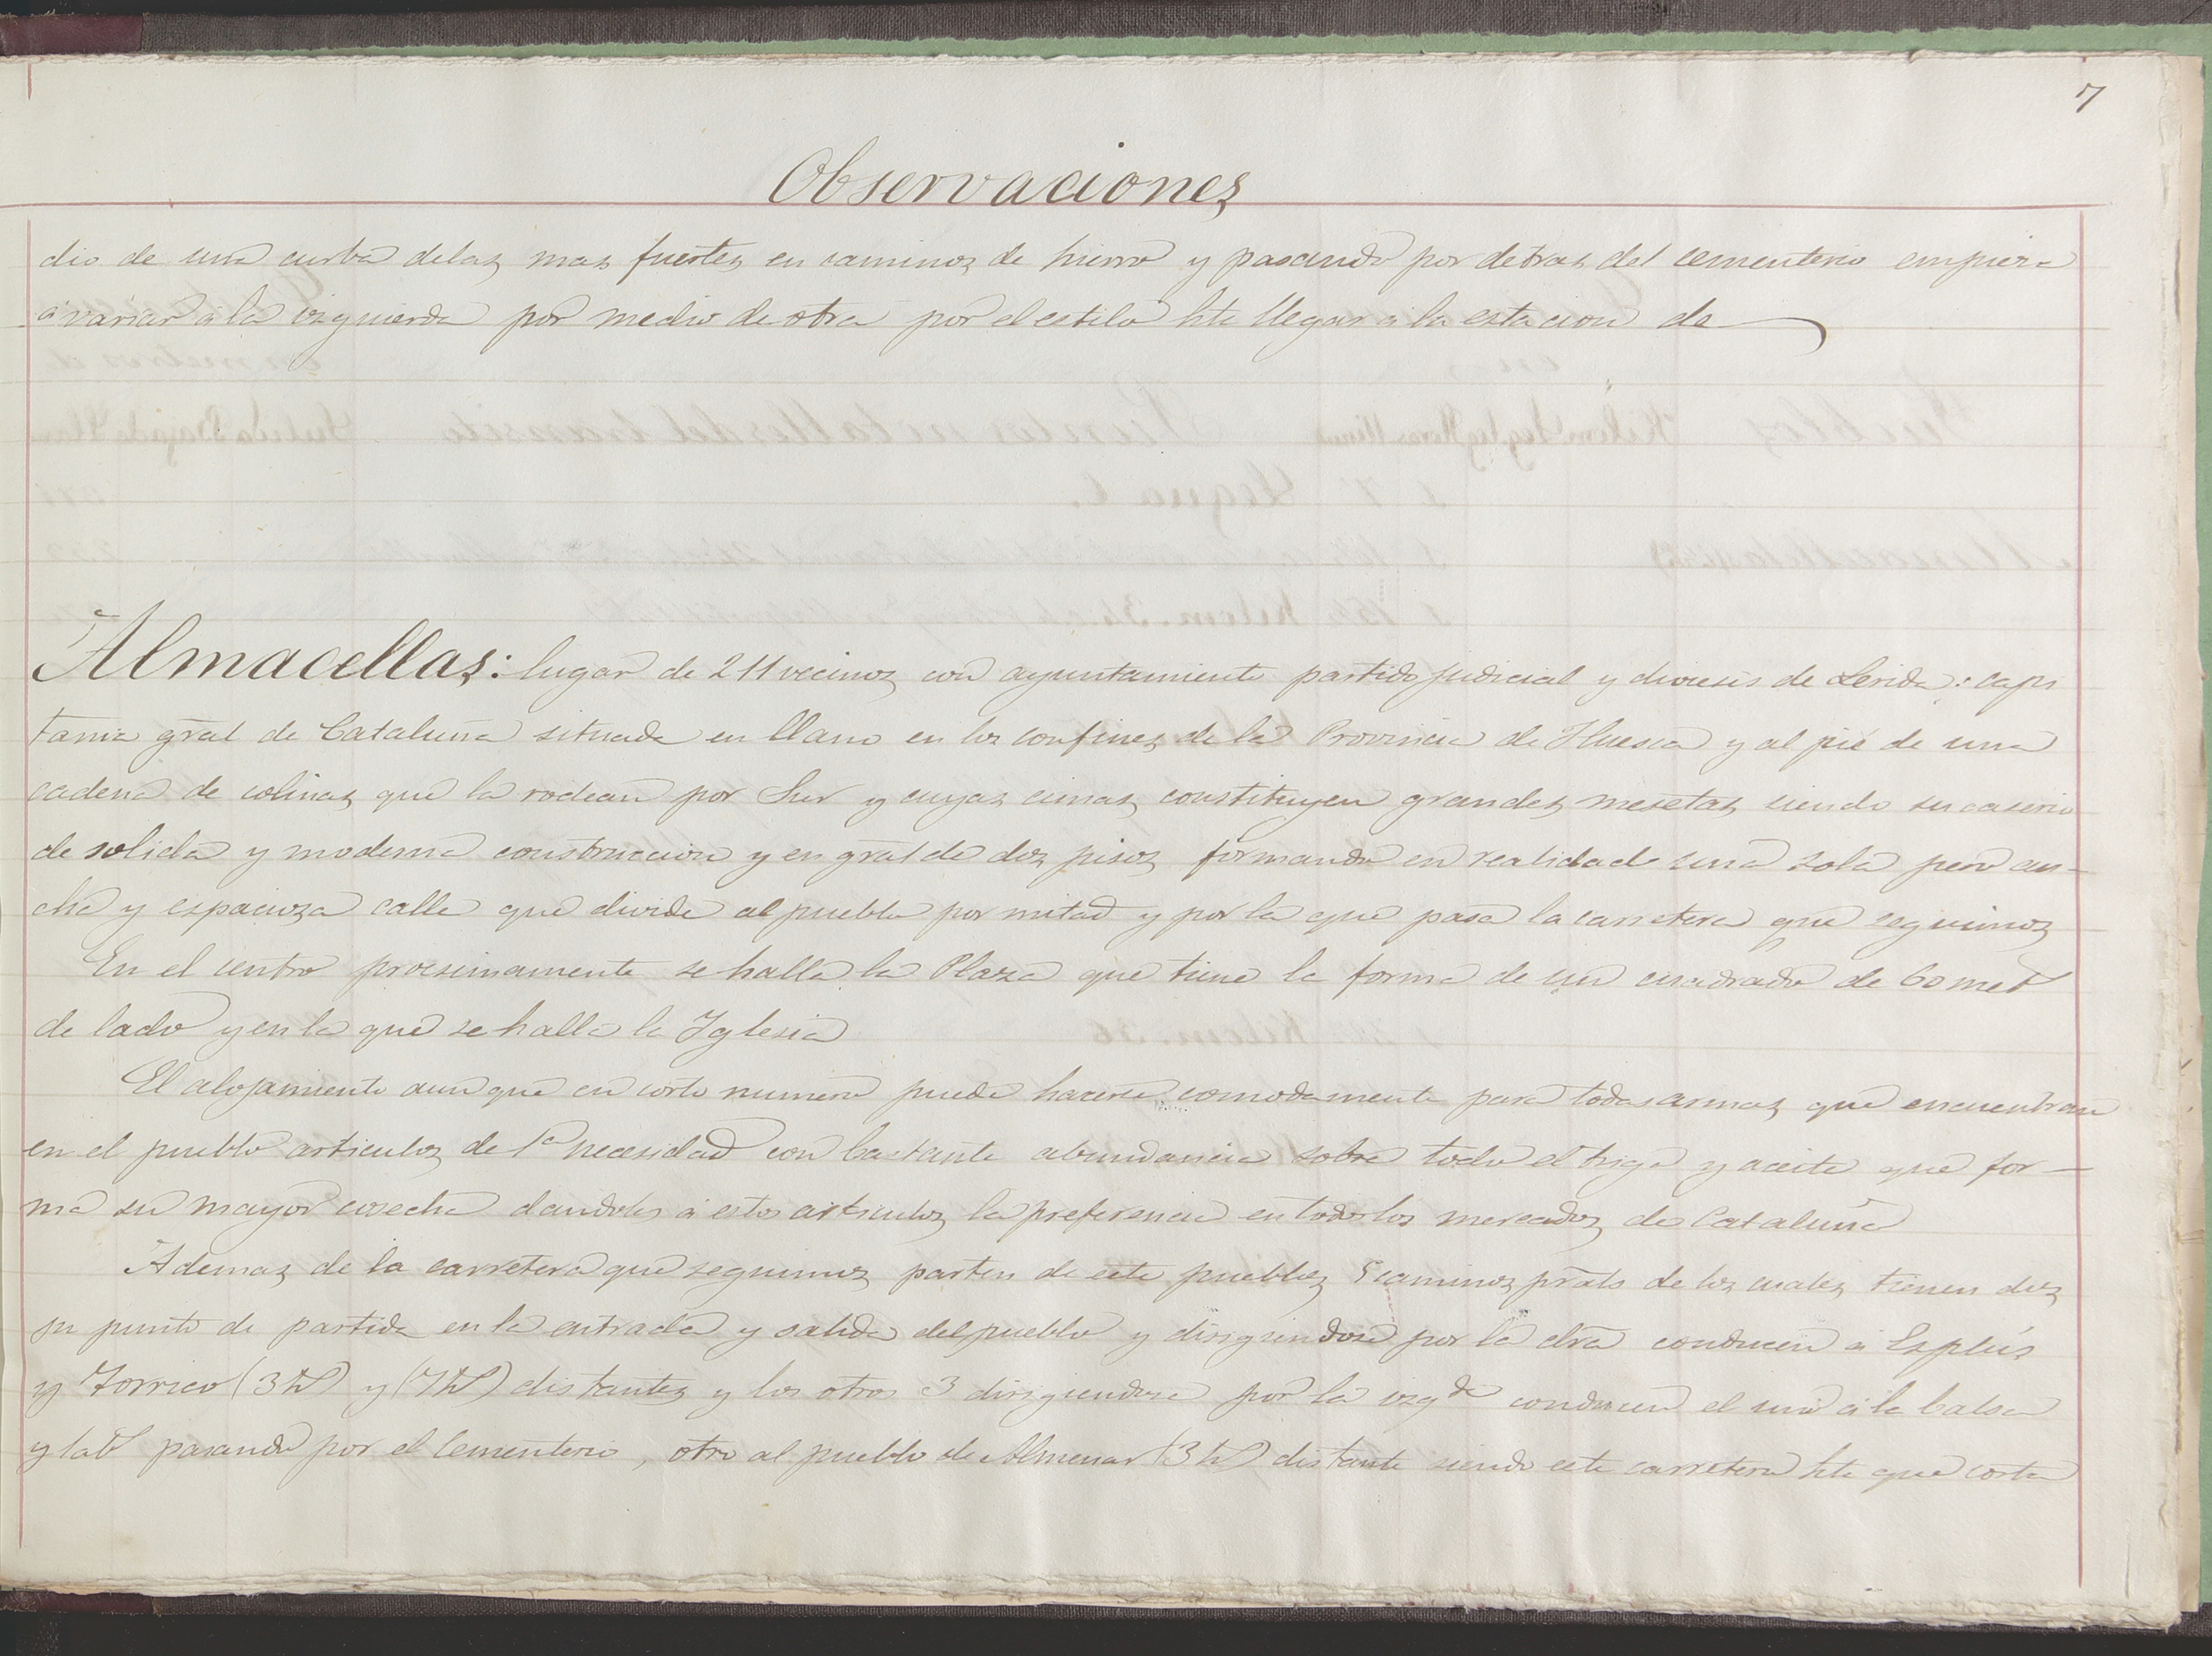 7
Observaciones
dio de una curba delas mas fuertes en caminos de hierro y pasando por detras del cementerio empieza
á variar á la izquierda por medio de otra por el estilo hta llegar á la estacion de
Almacellas: lugar de 211 vecinos con ayuntamiento partido judicial y diocesis de Lerida: capi
tania gral de Cataluña situada en llano en los confines de la Provincia de Huesca y al pié de una
cadena de colinas que la rodean por Sur y cuyas cimas constituyen grandes mesetas siendo su caserio
de solida y moderna construccion y en gral de dos pisos formando en realidad una sola pero an-
cha y espaciosa calle que divide al pueblo por mitad y por la que pasa la carretera que seguimos
En el centro procsimamente se halla la Plaza que tiene la forma de un cuadrado de 60 met
de lado y en la que se halla la Yglesia
El alojamiento aunque en corto numero puede hacerse comodamente para todas armas que encuentran
en el pueblo articulos de 1ª necesidad con bastante abundancia sobre todo el trigo y aceite que for-
ma su mayor cosecha dandoles á estos articulos la preferencia en todos los mercados de Cataluña
Ademas de la carretera que seguimos parten de este pueblos 5 caminos prals de los cuales tienen dos
su punto de partida en la entrada y salida del pueblo y dirigiendose por la dra conducen á Esplús
y Torrico (3 ) y (7 ) distantes y los otros 3 dirigiendose por la izqda conducen el uno á la balsa
y pasando por el Cementerio, otro al pueblo de Almenar (3 ) distante siendo este carretera hta que corta